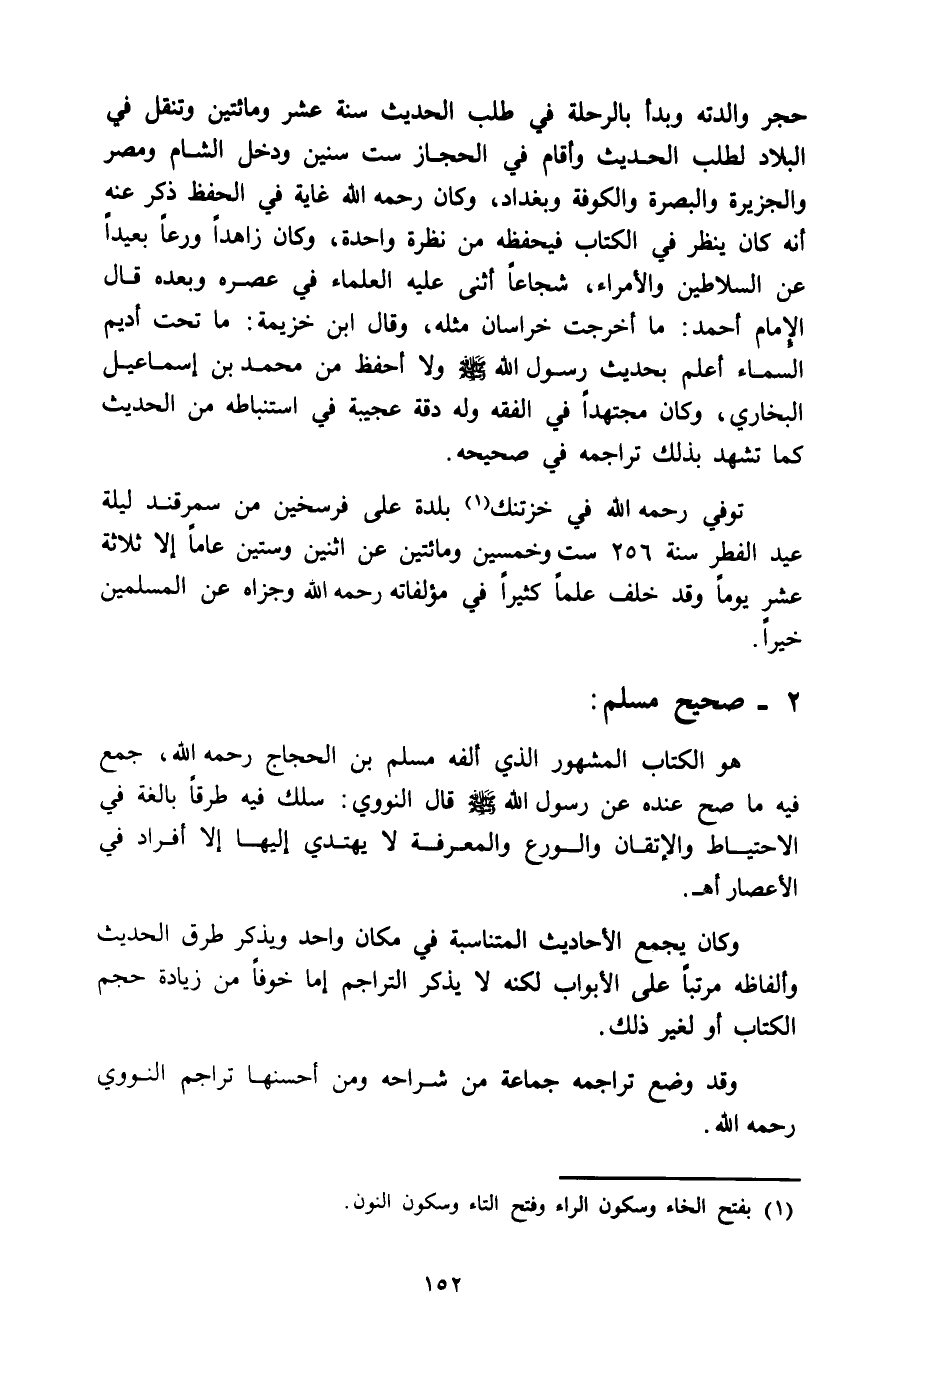 حجر والدته وبدأ بالرحلة في طلب الحديث سنة عشر ومائتين وتنقل في
البلاد لطلب الحديث وأقام في الحجاز ست سنين ودخل الشام ومصر
والجزيرة والبصرة والكوفة وبغداد، وكان رحمه الله غاية في الحفظ ذكر عنه
أنه كان ينظر في الكتاب فيحفظه من نظرة واحدة، وكان زاهداً ورعاً بعيداً
عن السلاطين والأمراء، شجاعاً أثنى عليه العلماء في عصره وبعده قال
الإمام أحمد: ما أخرجت خراسان مثله، وقال ابن خزيمة: ما تحت أديم
السماء أعلم بحديث رسول الله ﷺ ولا أحفظ من محمد بن إسماعيل
البخاري، وكان مجتهداً في الفقه وله دقة عجيبة في استنباطه من الحديث
كما تشهد بذلك تراجمه في صحيحه.
توفي رحمه الله في خزتنك(١) بلدة على فرسخين من سمرقند ليلة
عيد الفطر سنة ٢٥٦ ست وخمسين ومائتين عن اثنين وستين عاماً إلا ثلاثة
عشر يوماً وقد خلف علماً كثيراً في مؤلفاته رحمه الله وجزاه عن المسلمين
خيراً.
٢ - صحيح مسلم:
هو الكتاب المشهور الذي ألفه مسلم بن الحجاج رحمه الله، جمع
فيه ما صح عنده عن رسول الله ﷺ قال النووي: سلك فيه طرقاً بالغة في
الاحتياط والإتقان والورع والمعرفة لا يهتدي إليها إلا أفراد في
الأعصار أهـ.
وكان يجمع الأحاديث المتناسبة في مكان واحد ويذكر طرق الحديث
وألفاظه مرتباً على الأبواب لكنه لا يذكر التراجم إما خوفاً من زيادة حجم
الكتاب أو لغير ذلك.
وقد وضع تراجمه جماعة من شراحه ومن أحسنها تراجم النووي
رحمه الله.
(١) بفتح الخاء وسكون الراء وفتح التاء وسكون النون.
١٥٢